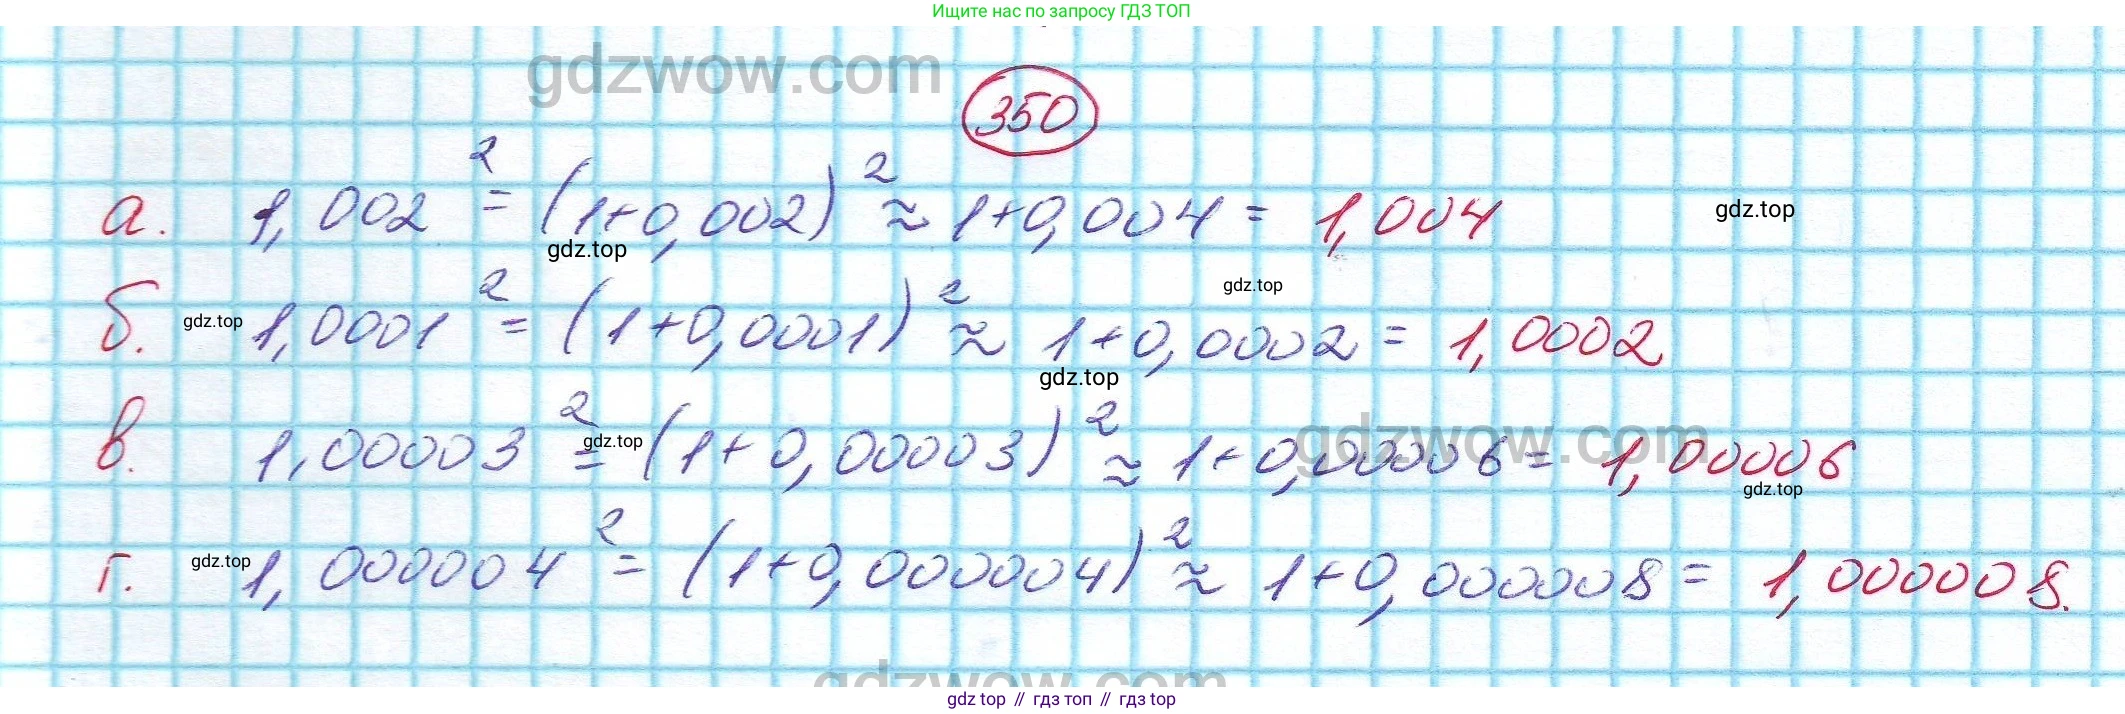 Ищите нас по запросу ГДЗ ТОП
gdzwow.com
350
а. 1,002² = (1+0,002)² ≈ 1+0,004 = 1,004
gdz.top
gdz.top
gdz.top
б. gdz.top 1,0001² = (1+0,0001)² ≈ 1+0,0002 = 1,0002
gdz.top
gdzwow.com
в. 1,00003² = (1+0,00003)² ≈ 1+0,00006 = 1,00006
gdz.top
gdz.top
г. gdz.top 1,000004² = (1+0,000004)² ≈ 1+0,000008 = 1,000008.
gdzwow.com
gdz.top // гдз топ // гдз top